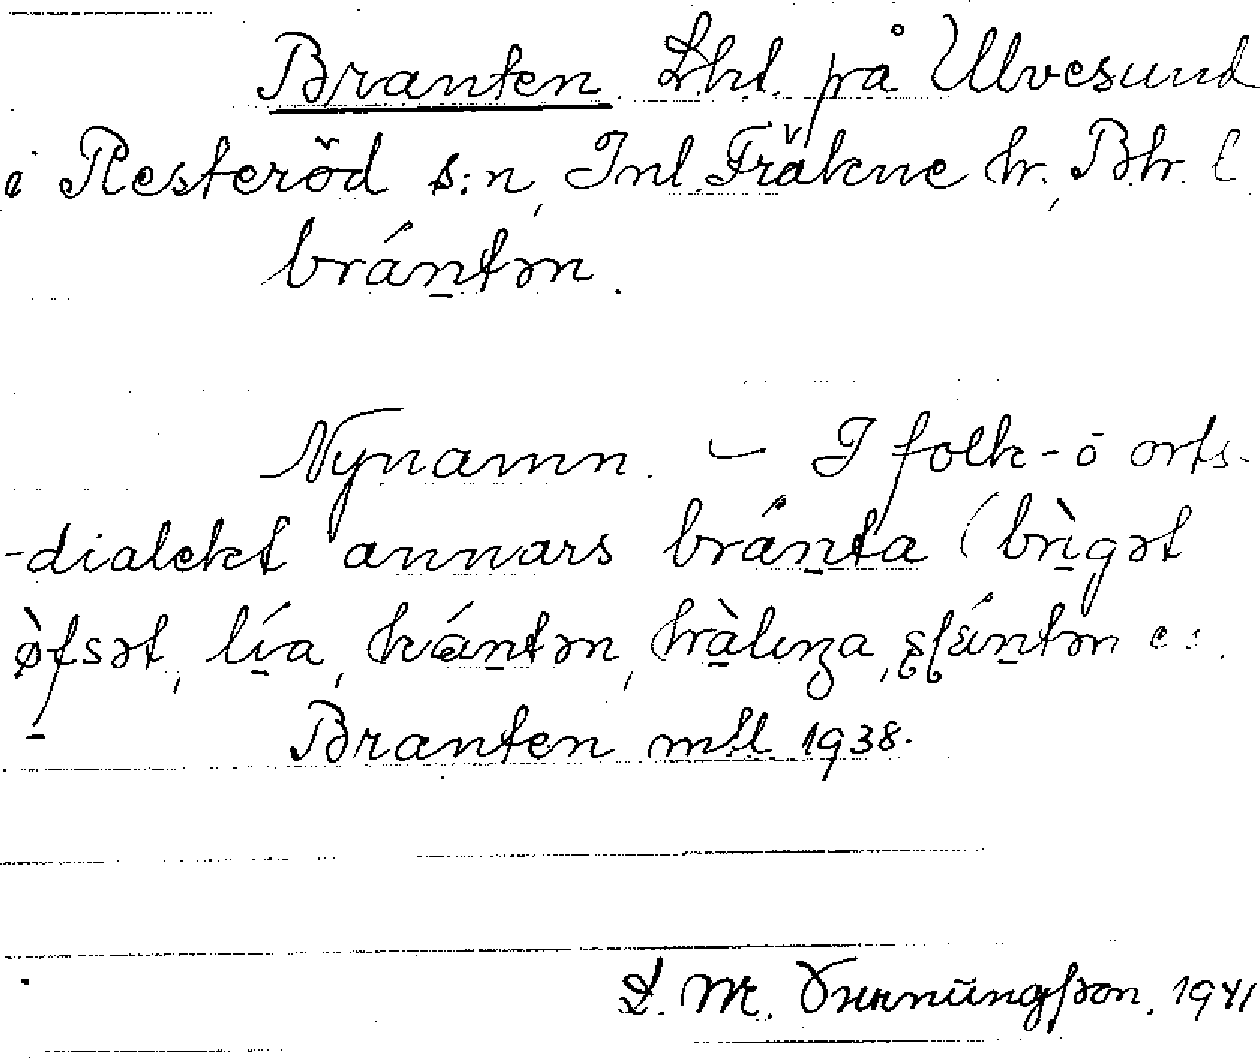 Branten Lht. på Ulvesund
i Resteröd s:n, Inl. Fräkne hr., Bhr. l
brántən.
Nynamn. – I folk- o orts-
-dialekt annars bránta (brìgət
øfsət, lía, kántən, hràlıga,
Branten mtl 1938.
L. M. 1941